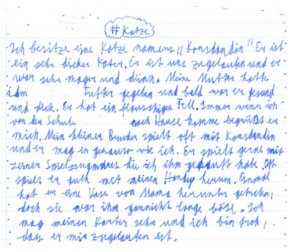 #Katze
Ich besitze eine Katze namens "Konsdandin" Er ist
ein sehr dicker Kater. Er ist uns zugelaufen und er
war sehr mager und dünn. Meine Mutter hatte
ihm Futter gegeben und bald war er gesund
und dick. Er hat ein flauschiges Fell. Immer wenn ich
von der Schule nach Hause komme begrüßt er
mich. Mein kleiner Bruder spielt oft mit Konsdandin
und er mag in genauso wie ich. Er spielt gerne mit
seiner die ich ihm gekauft habe. Oft
spielt er auch mit meinen Handy herum. Einmal
hat er eine Vase von Mama herunter
doch sie war ihm garnicht lange böse. Ich
mag meinen Kater sehr und ich bin froh,
das er mir zugelaufen ist.